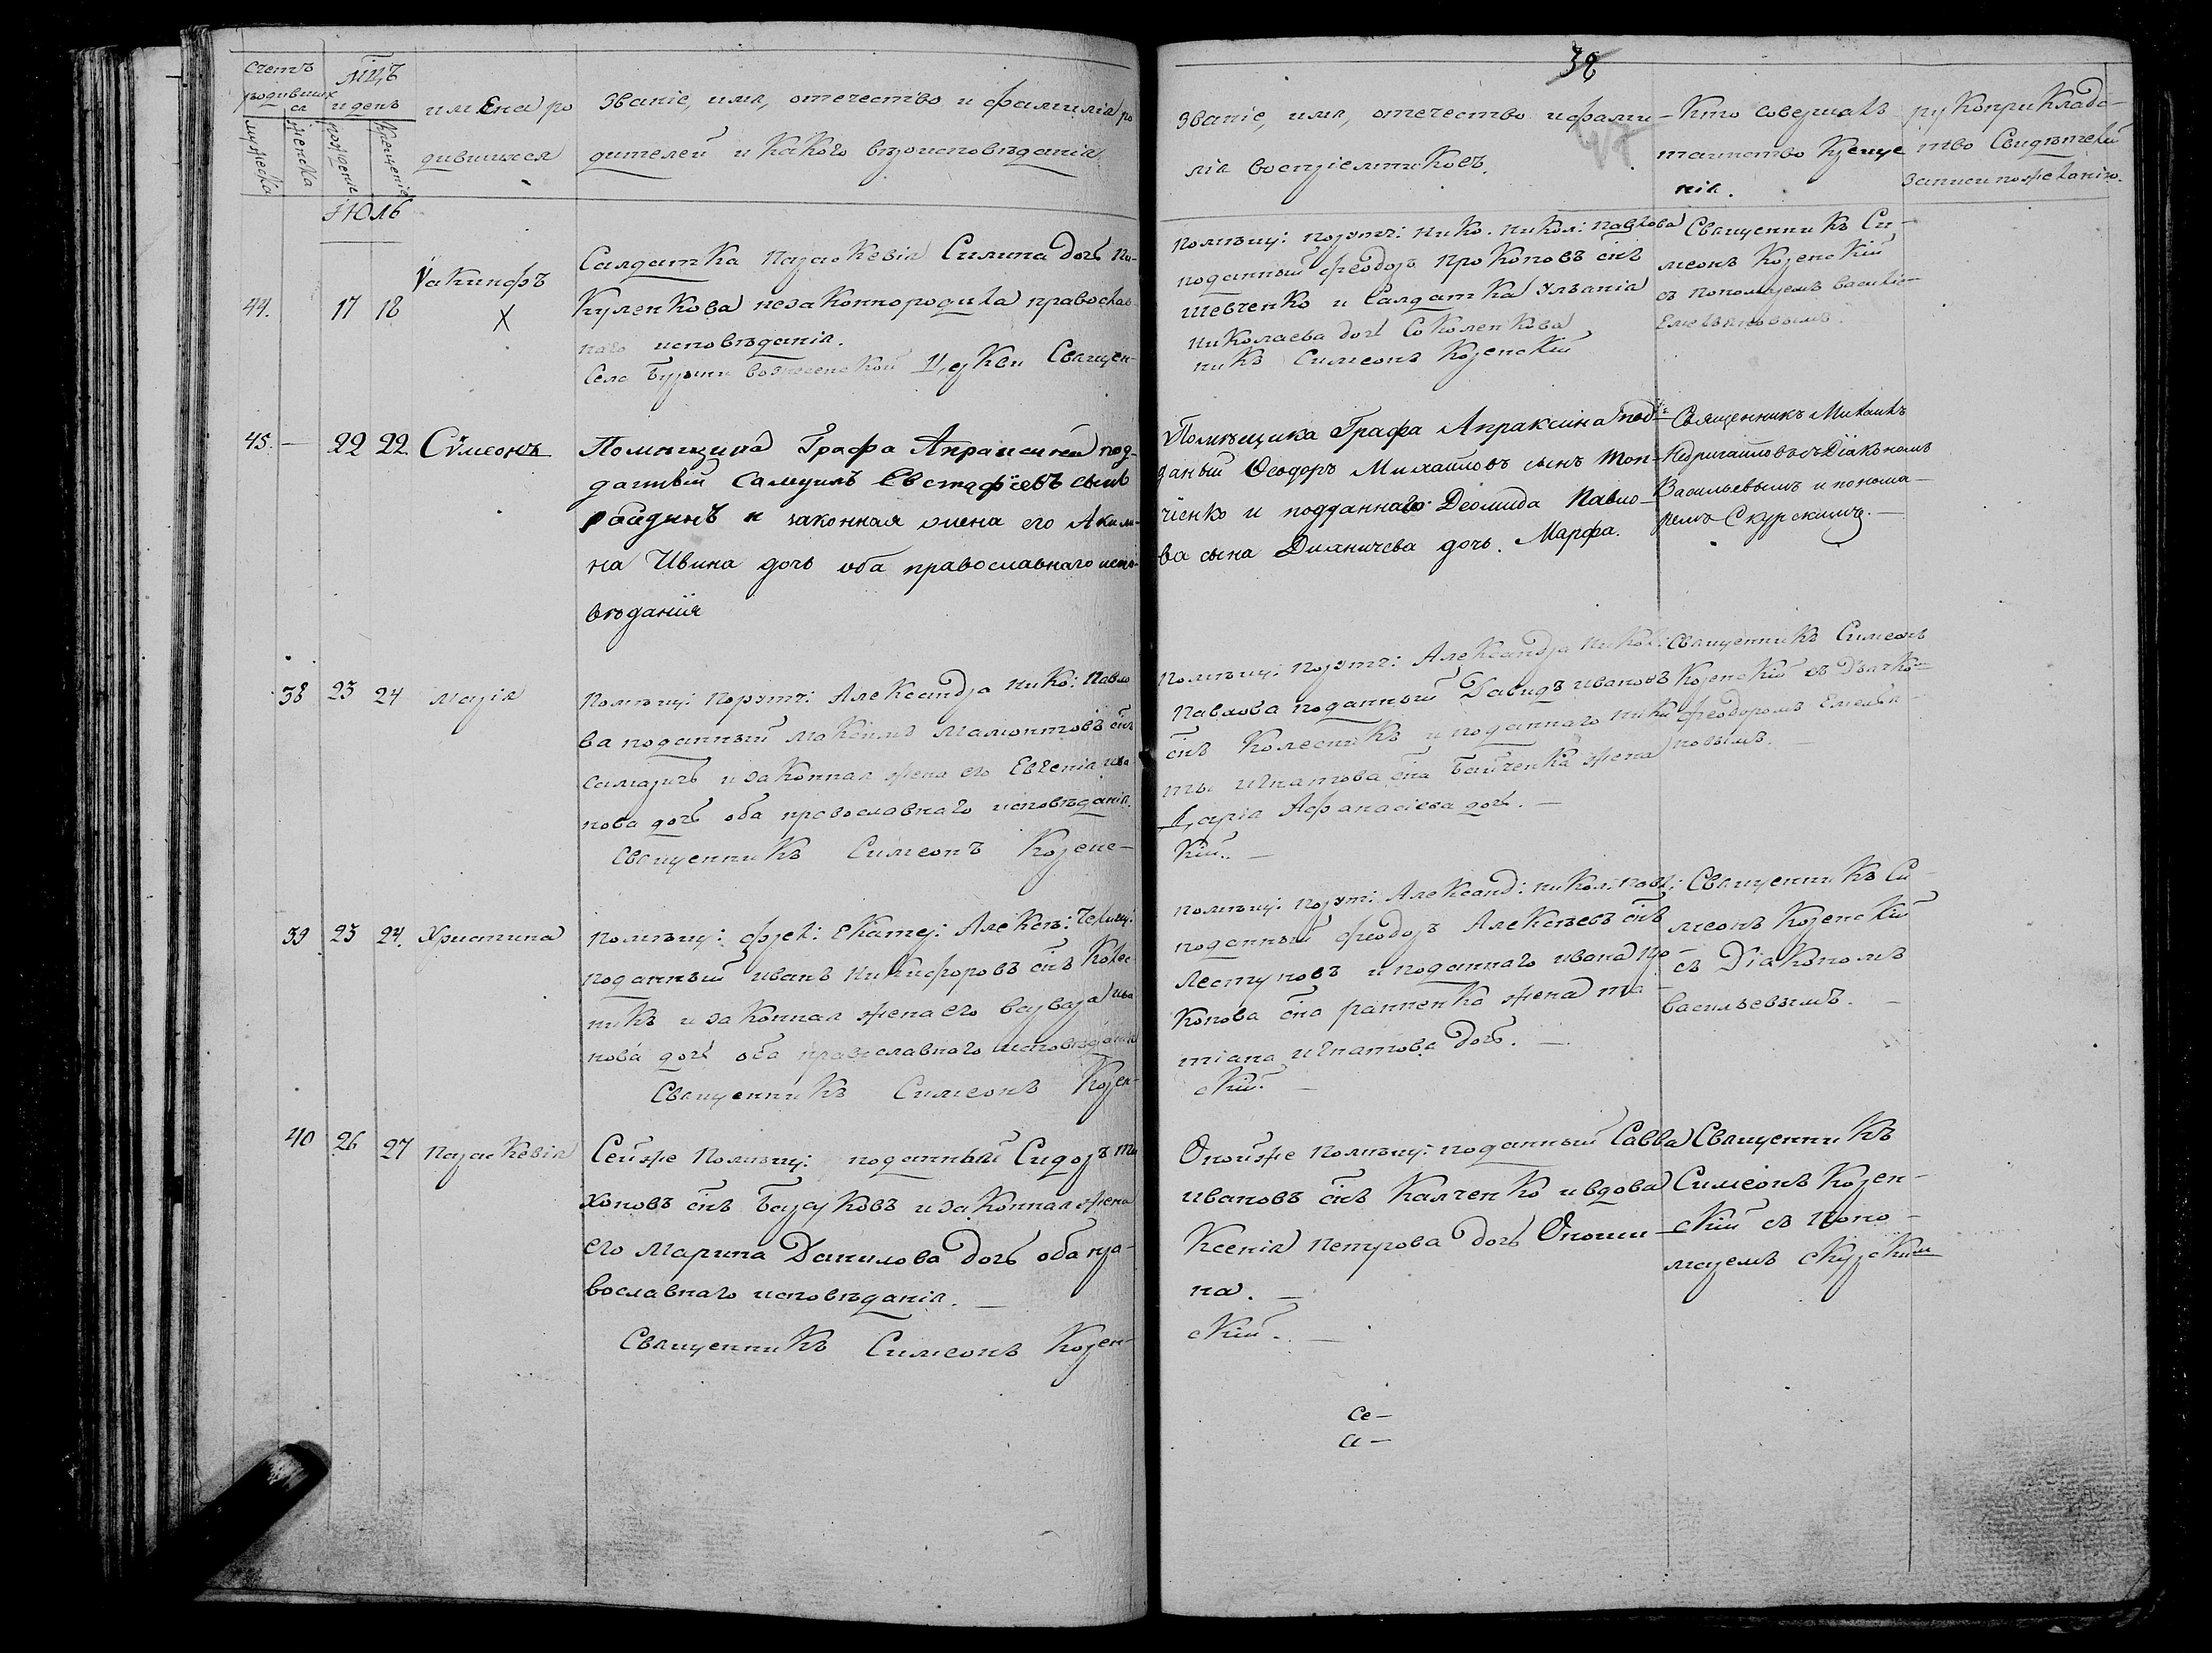 Счетъ
родивших
ся
мужеска
женска
мцъ
и день
рожденіе
крещеніе
имена ро
дившихся
Званіе, имя, отечество и фамилія ро
дителей и какого вероисповѣданія
Июль
44.
17
18
Иакинфъ
X
Салдатка Параскевія Силина дочь Пи-
куленкова незаконнородила православ-
наго исповѣданія.
Села Бурыни Вознесенской Церкви Священ-
45.
—
22
22
Сѵмеонъ
Помѣщика Графа Апраксина под-
данный Самуилъ Евстафіевъ сынъ
и законная жена его Акили-
на Ивина дочь оба православнаго испо-
вѣданія
38
23
24
Марія
Помѣщ: Порут: Александра Нико: Павло
ва поданный Максимъ Мамонтовъ снъ
Самаричъ и законная жена его Евгенія Ива
нова дочь оба православнаго исповѣданія.
Священникъ Симеонъ Коренс-
39
23
24.
Христина
Помѣщ: Екатер: Алексѣ:
поданный Иванъ Никифоровъ снъ Колес
никъ и законная жена его Варвара Ива
нова дочь оба православнаго исповѣданія
Священникъ Симеонъ Корен-
40
26
27
Параскевія
Сейже Помѣщ: поданный Сидоръ Ти
хоновъ снъ Бардуковъ и законная жена
его Марина Данилова дочь оба пра-
вославнаго исповѣданія. —
Священникъ Симеонъ Корен-
38
Званіе, имя, отечество и фами-
лія воспріемниковъ.
Кто совершалъ
таинство креще
нія.
рукоприкладс-
тво Свидѣтелей
записи по желанію.
Помѣщ: Порутч: Нико. Никол: Павлова
поданный Феодоръ Прокоповъ снъ
Шевченко и Салдатка Ульянія
Николаева дочь Соколенкова
никъ Симеонъ Коренскій
Священникъ Си-
меонъ Коренскій
съ пономаремъ Василіе-
Емельяновымъ.
Помѣщика Графа Апраксина под-
даный Ѳеодоръ Михайловъ сынъ Топ-
чіенко и подданнаго Деомида Павло-
ва сына Дианичева дочь. Марфа.
Священникъ Михаилъ
Недригайловъ съ Діакономъ
Васильевымъ и понома-
ремъ Скурскимъ. —
Помѣщ: Порутч: Александра Никол:
Павлова поданный Давидъ Ивановъ
снъ Колесникъ и поданнаго Ники
ты Игнатова сна Байченка жена
Дарія Афанасіева дочь. —
кій. —
Священникъ Симеонъ
Коренскій съ Дьячко-
Феодоромъ Емелья
новымъ. —
Помѣщ: Порут: Александ: Никол: Павл:
поданный Феодоръ Алексѣевъ снъ
Лестуновъ и поданнаго Ивана Про
копова сна Ранненка жена Та-
тіана Игнатова дочь. —
скій. —
Священникъ Си
меонъ Коренскій
съ Діакономъ
Васильевымъ. —
Онойже Помѣщ: поданный Савва
Ивановъ снъ Калченко и вдова
Ксенія Петрова дочь Онопри-
на. —
скій. —
Священникъ
Симеонъ Корен-
скій съ Поно-
маремъ Скурским
Се—
а—